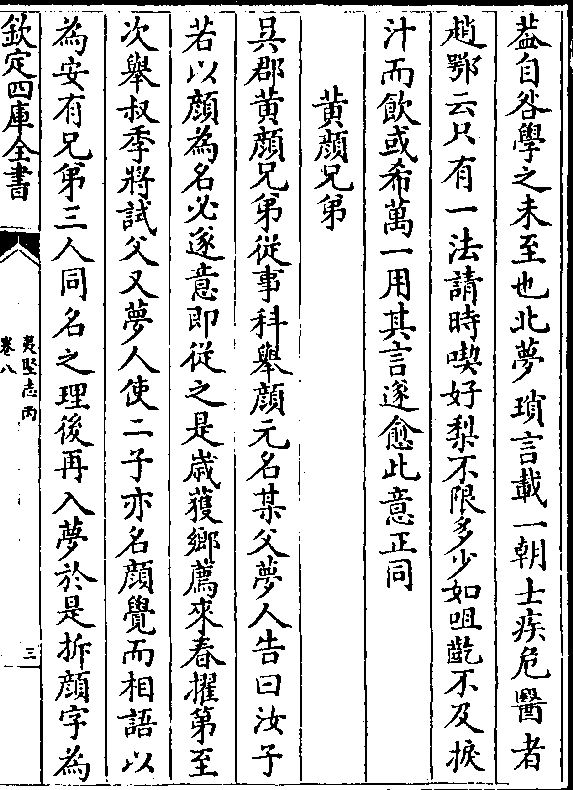 葢自咎學之未至也北夢瑣言載一朝士疾危醫者
趙鄂云只有一法請時喫好梨不限多少如咀齕不及捩
汁而飲或希萬一用其言遂愈此意正同
黄顔兄弟
吳郡黄顔兄弟從事科舉顔元名某父夢人告曰汝子
若以顔為名必遂意即從之是歲獲鄉薦來春擢第至
次舉叔季將試父又夢人使二子亦名顔覺而相語以
為安有兄弟三人同名之理後再入夢於是拆顔字為
欽定四庫全書
夷堅志丙
卷八
三